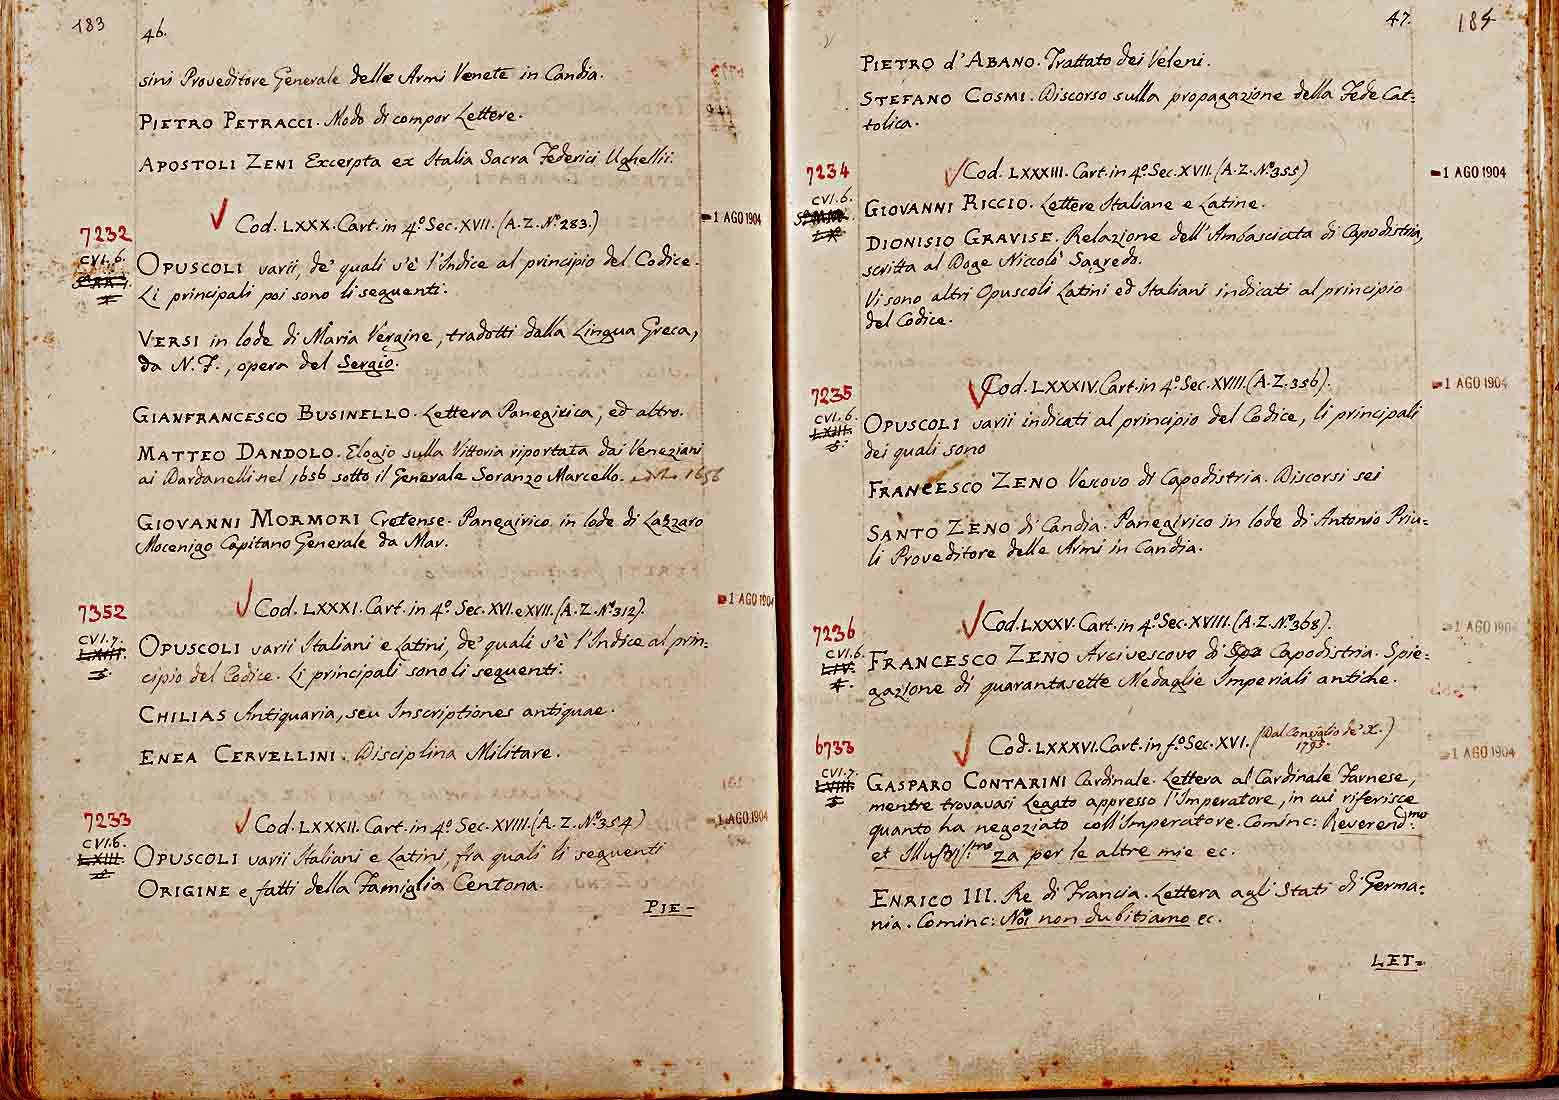 183
46.
sini Proveditore Generale delle Armi Venete in Candia.
PIETRO PETRACCI. Modo di compor Lettere.
APOSTOLI ZENI Excerpta ex Italia Sacra Federici Ughellii.
Cod. LXXX. Cart. in 4.º Sec. XVII. (A.Z. Nº 283.)
1 AGO 1904
7232
CVI. 6.
OPUSCOLI varii, de' quali v'è l'Indice al principio del Codice.
Li principali poi sono li seguenti.
VERSI in lode di Maria Vergine, tradotti dalla Lingua Greca,
da N. F., opera del Sergio.
GIANFRANCESCO BUSINELLO. Lettera Panegirica, ed altro.
MATTEO DANDOLO. Elogio sulla Vittoria riportata dai Veneziani
ai Dardanelli nel 1656 sotto il Generale Soranzo Marcello. 1656
GIOVANNI MORMORI Cretense. Panegirico in lode di Lazzaro
Mocenigo Capitano Generale da Mar.
Cod. LXXXI. Cart. in 4.º Sec. XVI. e XVII. (A.Z. Nº 312).
1 AGO 1904
7352
CVI. 7.
OPUSCOLI varii Italiani e Latini, de' quali v'è l'Indice al prin-
cipio del Codice. Li principali sono li seguenti.
CHILIAS Antiquaria, seu Inscriptiones antiquae.
ENEA CERVELLINI. Disciplina Militare.
Cod. LXXXII. Cart. in 4.º Sec. XVIII. (A.Z. Nº 354)
1 AGO 1904
7233
CVI. 6.
LXIII.
OPUSCOLI varii Italiani e Latini, fra quali li seguenti
ORIGINE e fatti della Famiglia Centona.
PIE-
47.
184
PIETRO d'ABANO. Trattato dei Veleni.
STEFANO COSMI. Discorso sulla propagazione della Fede Cat=
tolica.
7234
Cod. LXXXIII. Cart. in 4.º Sec. XVII. (A.Z. Nº 355)
1 AGO 1904
CVI. 6.
GIOVANNI RICCIO. Lettere Italiane e Latine.
DIONISIO GRAVISE. Relazione dell'Ambasciata di Capodistria,
scritta al Doge Niccolò Sagredo.
Vi sono altri Opuscoli Latini ed Italiani indicati al principio
del Codice.
Cod. LXXXIV. Cart. in 4.º Sec. XVIII. (A.Z. 356).
1 AGO 1904
7235
CVI. 6.
LXIII.
5.
OPUSCOLI varii indicati al principio del Codice, li principali
dei quali sono
FRANCESCO ZENO Vescovo di Capodistria. Discorsi sei
SANTO ZENO di Candia. Panegirico in lode di Antonio Priu=
li Proveditore delle Armi in Candia.
Cod. LXXXV. Cart. in 4.º Sec. XVIII. (A.Z. Nº 368).
1 AGO 1904
7236
CVI. 6.
LIV.
4.
FRANCESCO ZENO Arcivescovo di Capodistria. Spie=
gazione di quarantasette Medaglie Imperiali antiche.
6733
Cod. LXXXVI. Cart. in fº. Sec. XVI. (Dal Consiglio de' X. 1795.)
1 AGO 1904
CVI. 7.
LVIII.
5
GASPARO CONTARINI Cardinale. Lettera al Cardinale Farnese,
mentre trovavasi Legato appresso l'Imperatore, in cui riferisce
quanto ha negoziato coll'Imperatore. Cominc: Reverend.mo
et Illustriss.mo za per le altre mie ec.
ENRICO III. Re di Francia. Lettera agli Stati di Germa=
nia. Cominc: Noi non dubitiamo ec.
LET=